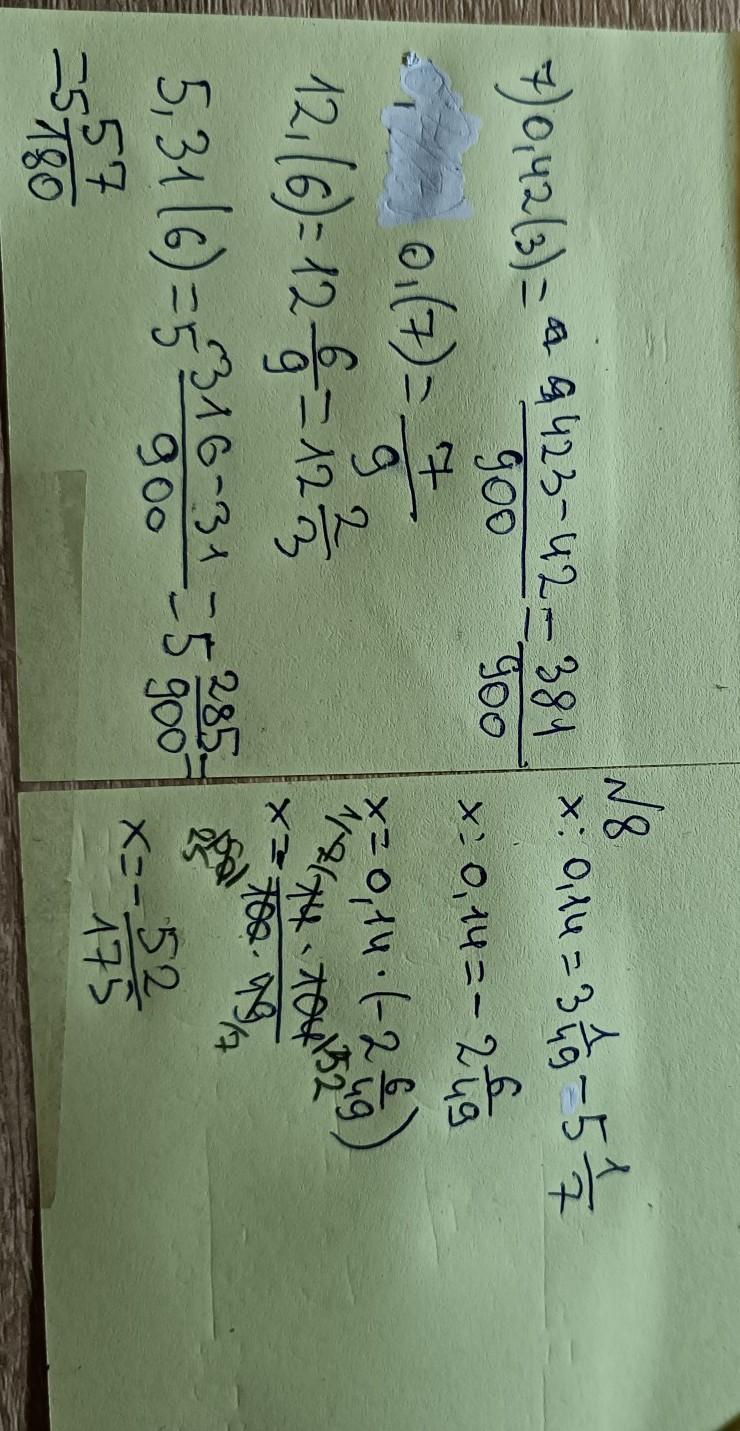 7) 0,42(3) = 423-42/900 = 381/900
0,(7) = 7/9
12,(6) = 12 6/9 = 12 2/3
5,31(6) = 5 316-31/900 = 5 285/900 =
= 5 57/180
№8
x : 0,14 = 3 1/49 - 5 1/7
x : 0,14 = - 2 6/49
x = 0,14 · (- 2 6/49)
x = - 14 · 104/100 · 49
x = - 52/175